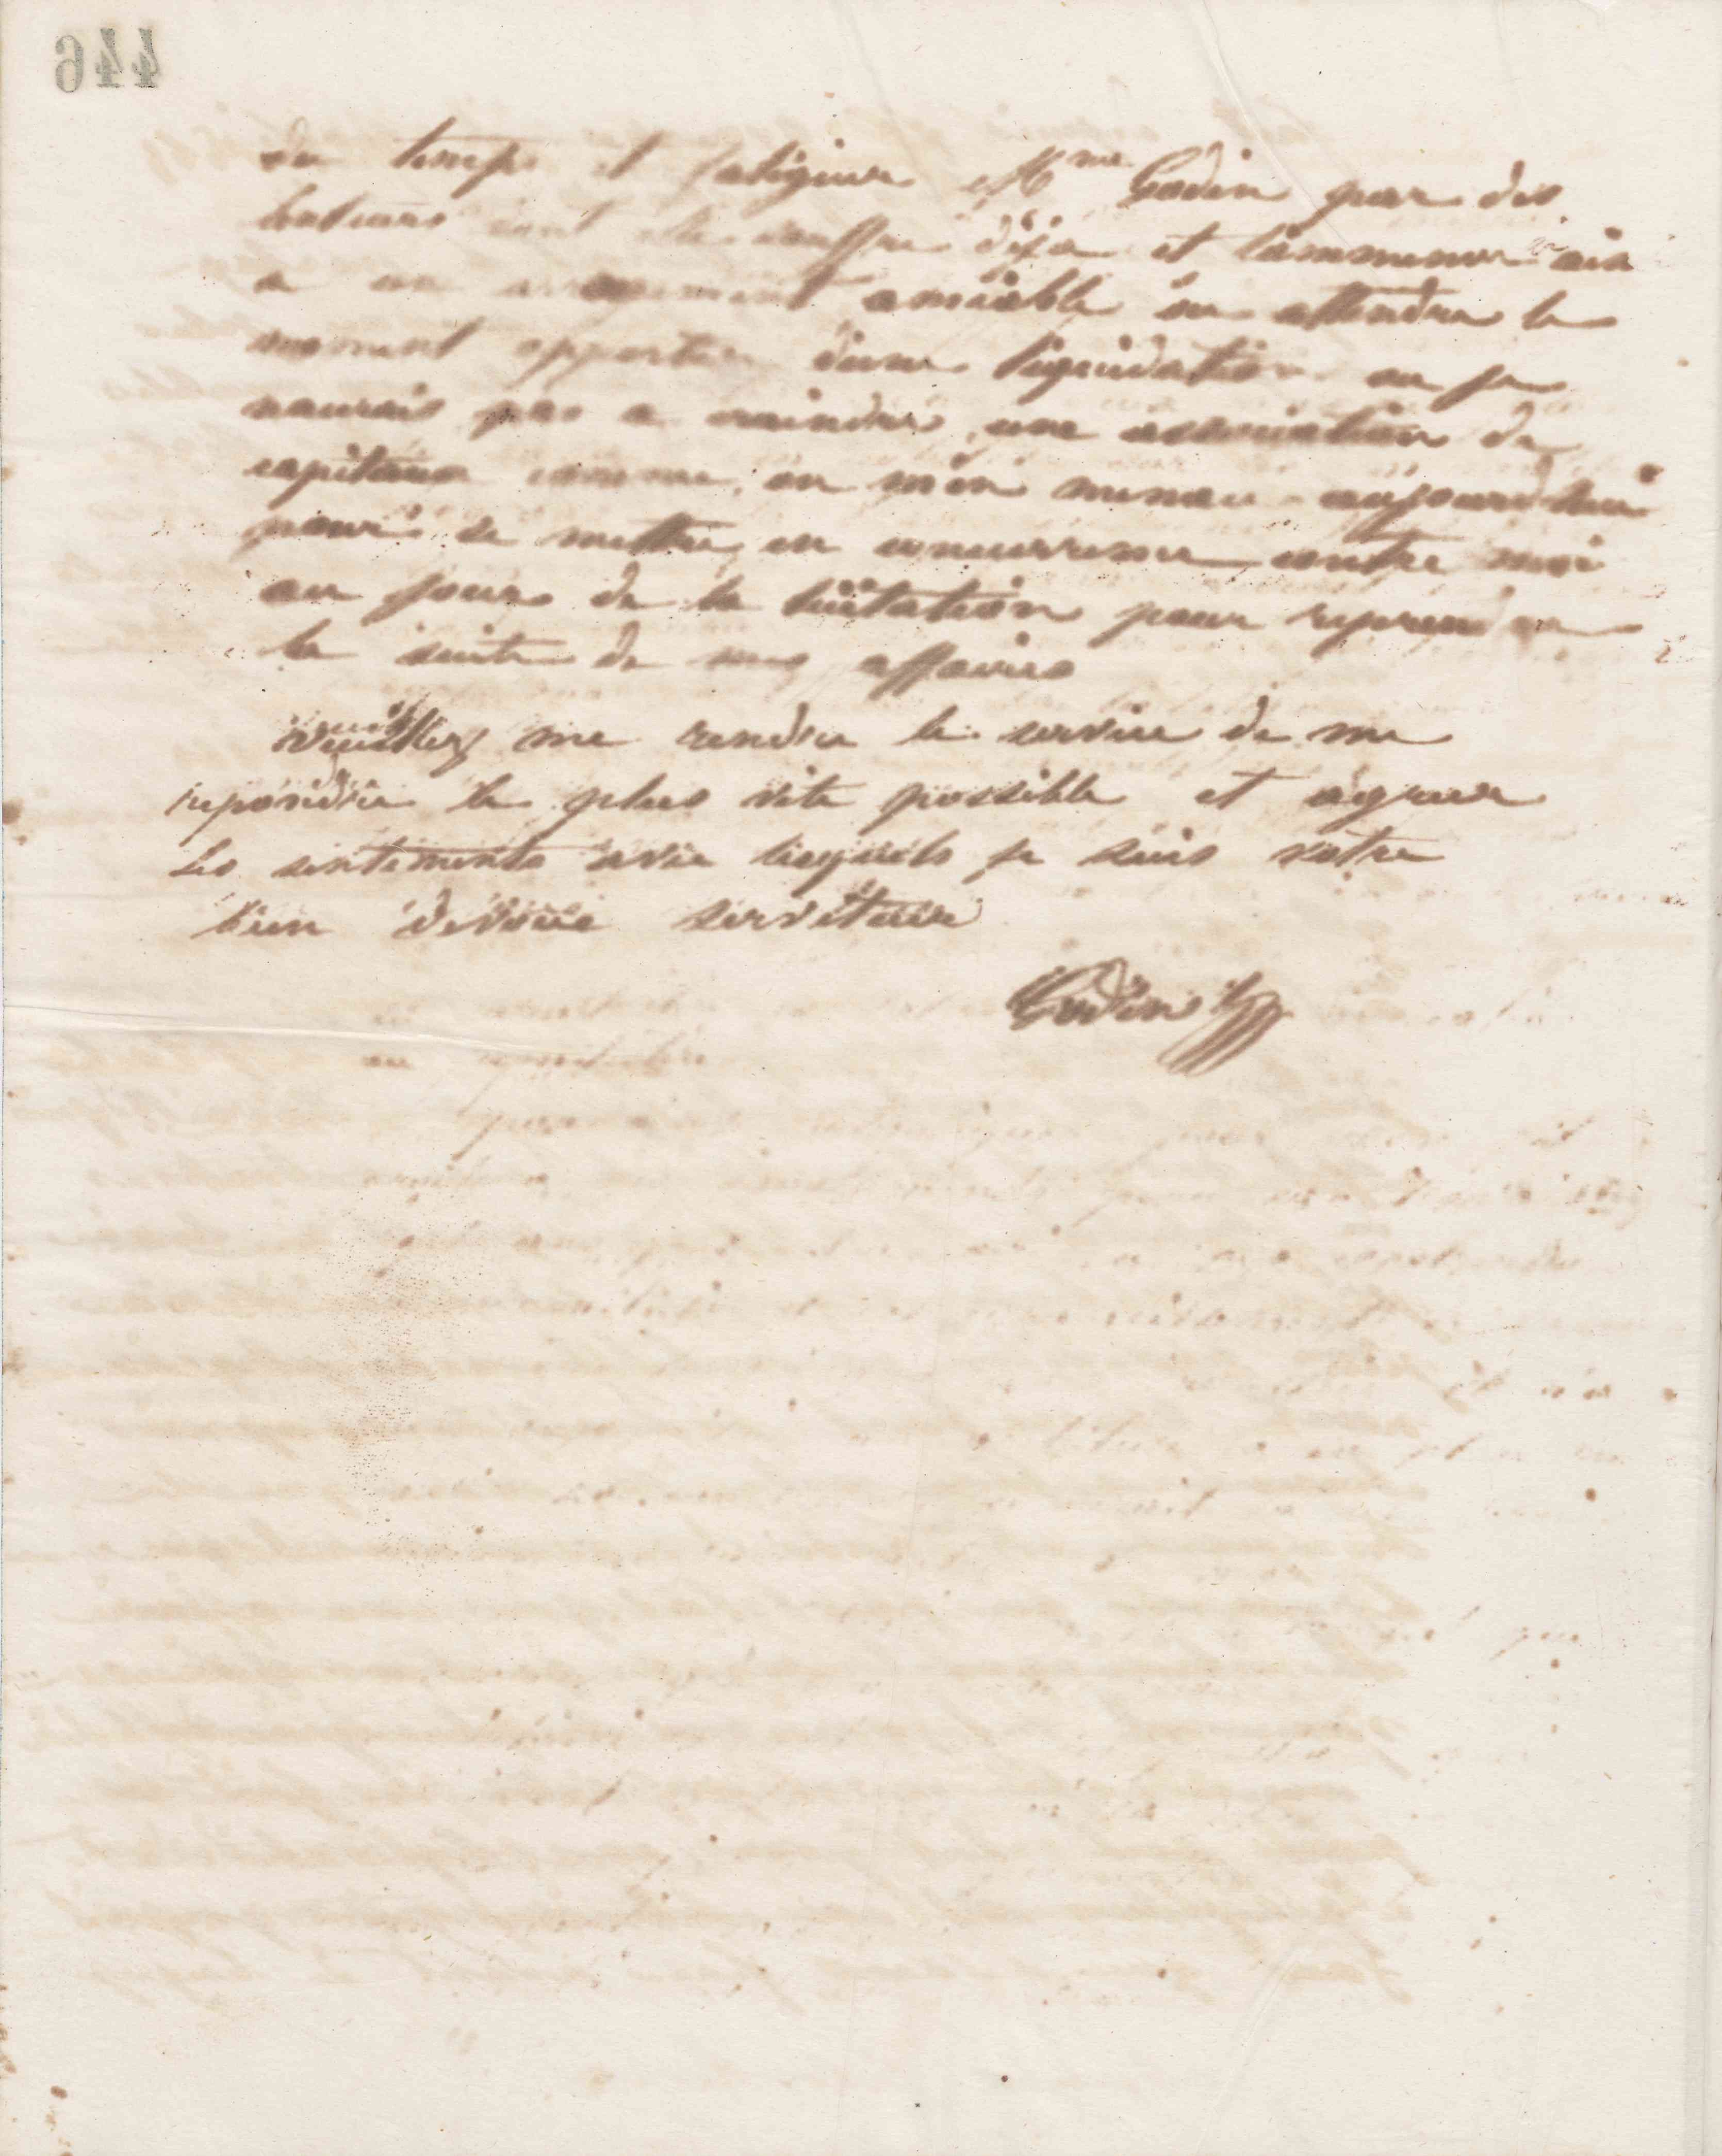 446
du temps et fatiguer Mme Godin par des
lenteurs dont elle souffre déja et lammener ais
a un arrangement amiable ou attendre le
moment opportun dune liquidation ou je
naurais pas a craindre une association de
capitaux comme on men menace aujourdhui
pour se mettre en concurrence contre moi
au jour de la licitation pour reprendre
la suite de mes affaires
Veuillez me rendre le service de me
repondre le plus vite possible et agreer
les sentiments avec lesquels je suis votre
bien devoué serviteur
Godin